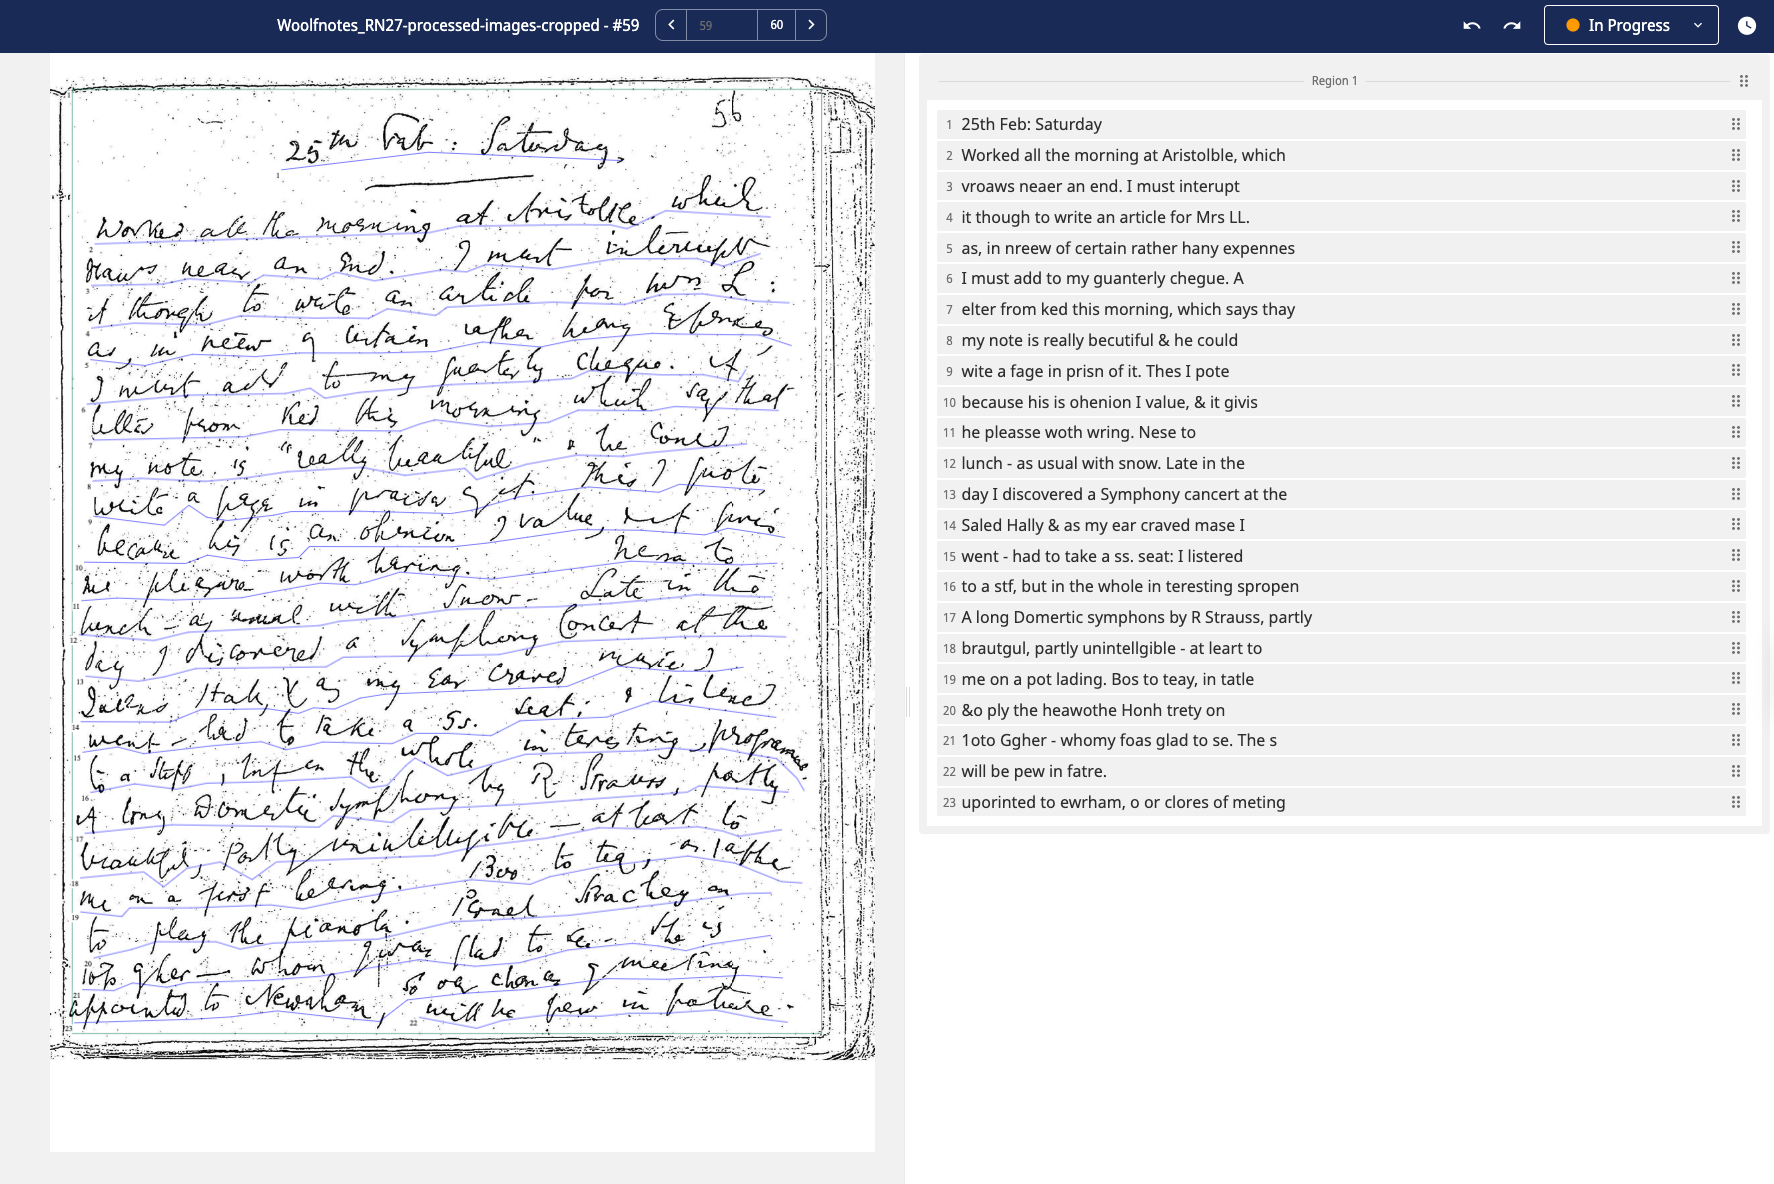 Woolfnotes_RN27-processed-images-cropped - #59
59
60
In Progress
56
25th Feb: Saturday.
Worked all the morning at Aristotle. which
draws near an End. I must interrupt
it though to write an article for Mrs L:
as, in view of certain rather heavy Expenses,
I must add to my quarterly cheque. A
letter from Ned this morning which says that
my note is "really beautiful" & he could
write a page in praise of it. This I quote,
because his is an opinion I value, but gives
me pleasure worth having. Nessa to
lunch - as usual with Snow - Late in the
day I discovered a Symphony Concert at the
Queens Hall, & as my Ear craved music I
went - had to take a 5s. seat; & listened
to a stiff, but on the whole interesting programme.
A long Domestic Symphony by R Strauss, partly
beautiful, partly unintelligible - at least to
me on a first hearing. Boo to tea, or rather
to play the pianola. Pernel Strachey on
top of her - whom I was glad to see - She is
appointed to Newnham, so our chances of meeting
will be few in future.
Region 1
1 25th Feb: Saturday
2 Worked all the morning at Aristolble, which
3 vroaws neaer an end. I must interupt
4 it though to write an article for Mrs LL.
5 as, in nreew of certain rather hany expennes
6 I must add to my guanterly chegue. A
7 elter from ked this morning, which says thay
8 my note is really becutiful & he could
9 wite a fage in prisn of it. Thes I pote
10 because his is ohenion I value, & it givis
11 he pleasse woth wring. Nese to
12 lunch - as usual with snow. Late in the
13 day I discovered a Symphony cancert at the
14 Saled Hally & as my ear craved mase I
15 went - had to take a ss. seat: I listered
16 to a stf, but in the whole in teresting spropen
17 A long Domertic symphons by R Strauss, partly
18 brautgul, partly unintellgible - at leart to
19 me on a pot lading. Bos to teay, in tatle
20 &o ply the heawothe Honh trety on
21 1oto Ggher - whomy foas glad to se. The s
22 will be pew in fatre.
23 uporinted to ewrham, o or clores of meting